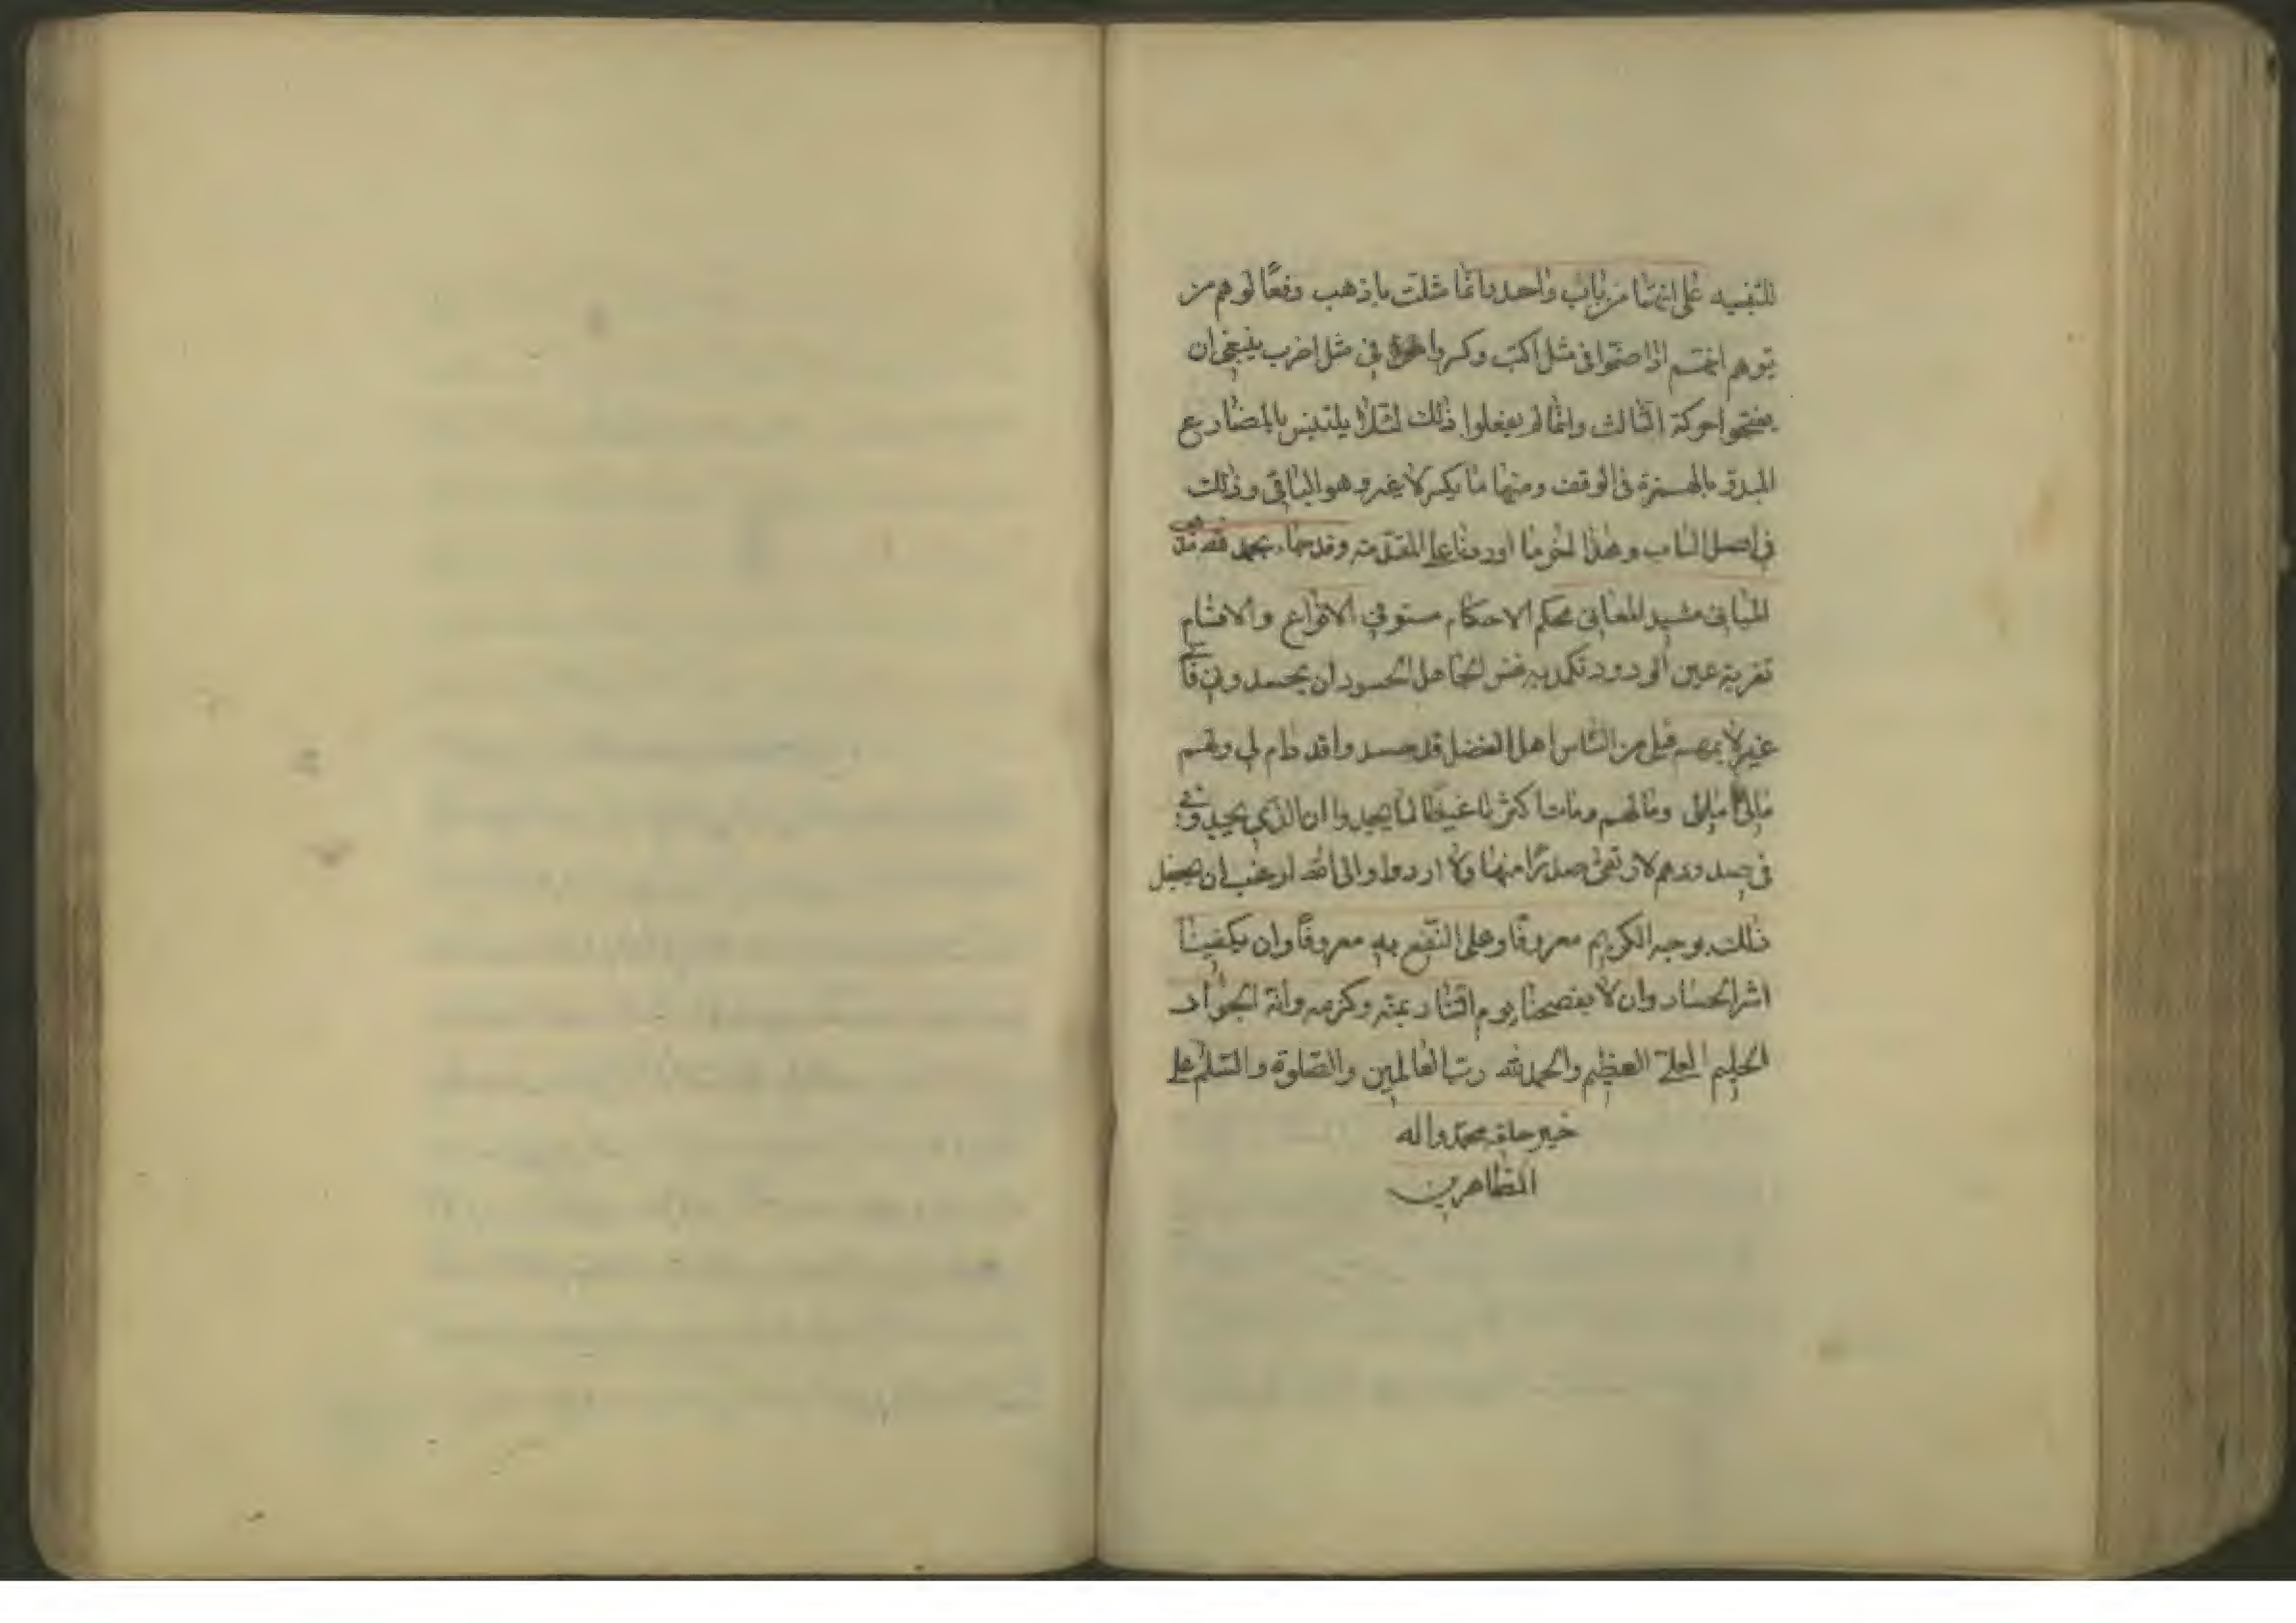 للتنبيه على انهما من باب واحد وانما مثلت باذهب دفعًا لوهم من
يتوهم انهم اذا ضموا في مثل اكتب وكسروا في مثل اضرب ينبغي ان
يفتحوا حركة الثالث وانما لم يفعلوا ذلك لئلا يلتبس بالمضارع
المبدو بالهمزة في الوقف ومنها ما يكسر لا غير وهو الباقي وذلك
في اصل الباب وهذا اخر ما اوردناه على المقدمة وقد جاء بحمد الله
المباني مشيد المعاني محكم الاحكام مستوفي الانواع والاقسام
تقر به عين الودود تكمد به نفس الجاهل الحسود ان يحسدوني فاني
غير لائمهم قبلي من الناس اهل الفضل قد حسدوا فدام لي ولهم
مابي وما بهم ومات اكثرنا غيظا لما يجد وانا الذي يجدوني
في صدورهم لا ارتقي صدرًا منها ولا ارد والى الله ارغب ان يجعل
ذلك بوجهه الكريم معروفًا وعلى النفع به معروفًا وان يكفينا
اشر الحساد وان لا يفضحنا يوم التناد بمنه وكرمه وانه الجواد
الحليم العلي العظيم والحمد لله رب العالمين والصلوة والسلم على
خير خلقه محمد واله
الطاهرين